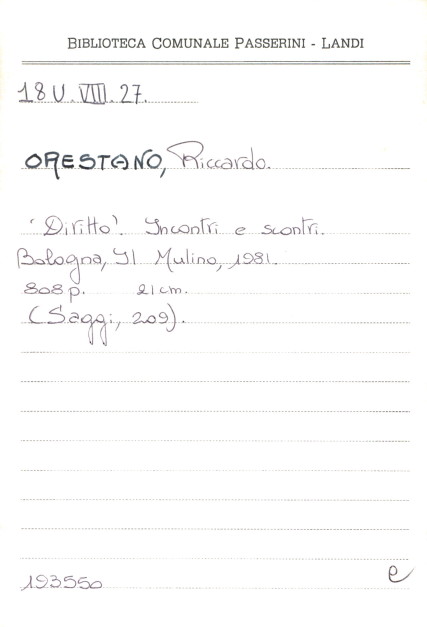 BIBLIOTECA COMUNALE PASSERINI - LANDI
18 U. VIII. 27.
ORESTANO, Riccardo.
'Diritto'. Incontri e scontri.
Bologna, Il Mulino, 1981.
808 p. 21 cm.
(Saggi, 209).
193550 e